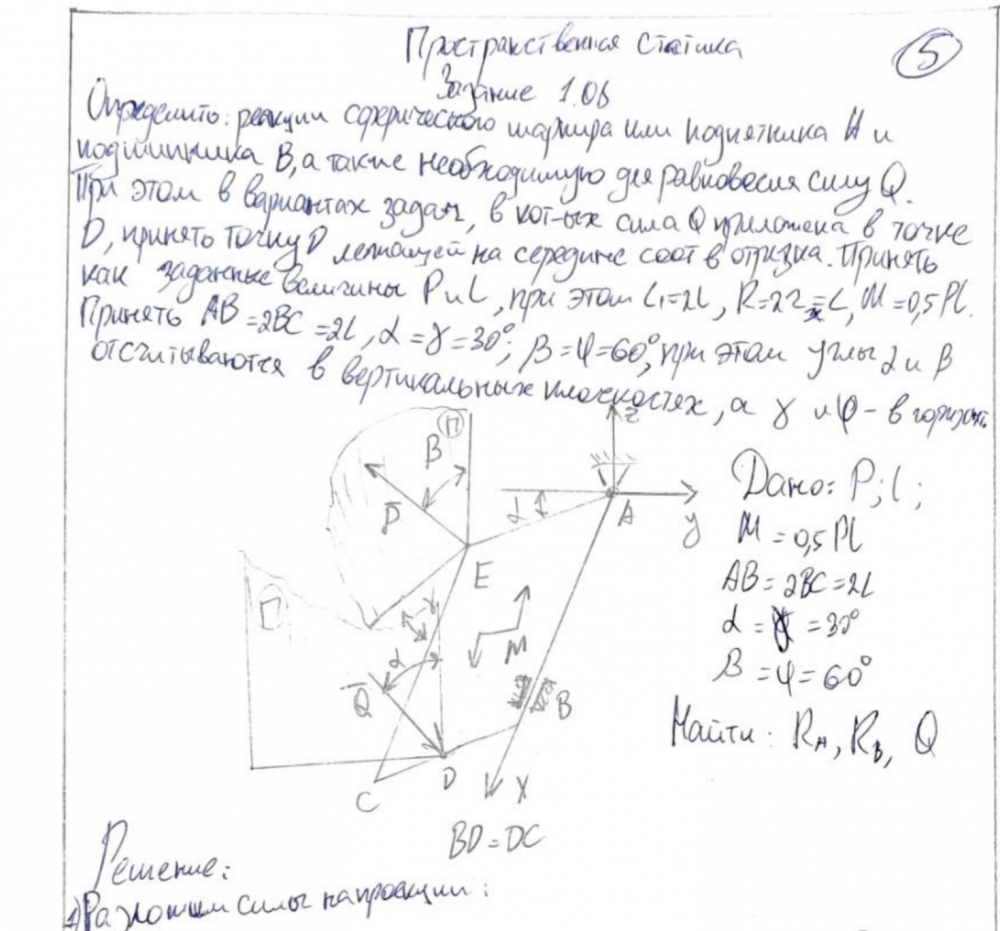 Пространственная статика
5
Задание 1.06
Определить: реакции сферического шарнира или подпятника А и
подшипника В, а также необходимую для равновесия силу Q.
При этом в вариантах задач, в кот-ых сила Q приложена в точке
D, принять точку D лежащей на середине соотв отрезка. Принять
как заданные величины P и L, при этом L₁=2L, R=2r=L, M=0,5PL.
Принять AB=2BC=2L, α=γ=30°; β=φ=60°, при этом углы α и β
отсчитываются в вертикальных плоскостях, а γ и φ - в горизонт.
П
z
β
P̅
α
A
y
E
П
γ
α
M
Q̅
B
C
D
X
BD=DC
Дано: P; l;
M=0,5Pl
AB=2BC=2l
α=γ=30°
β=φ=60°
Найти: R_A, R_B, Q
Решение:
1) Разложим силы на проекции: